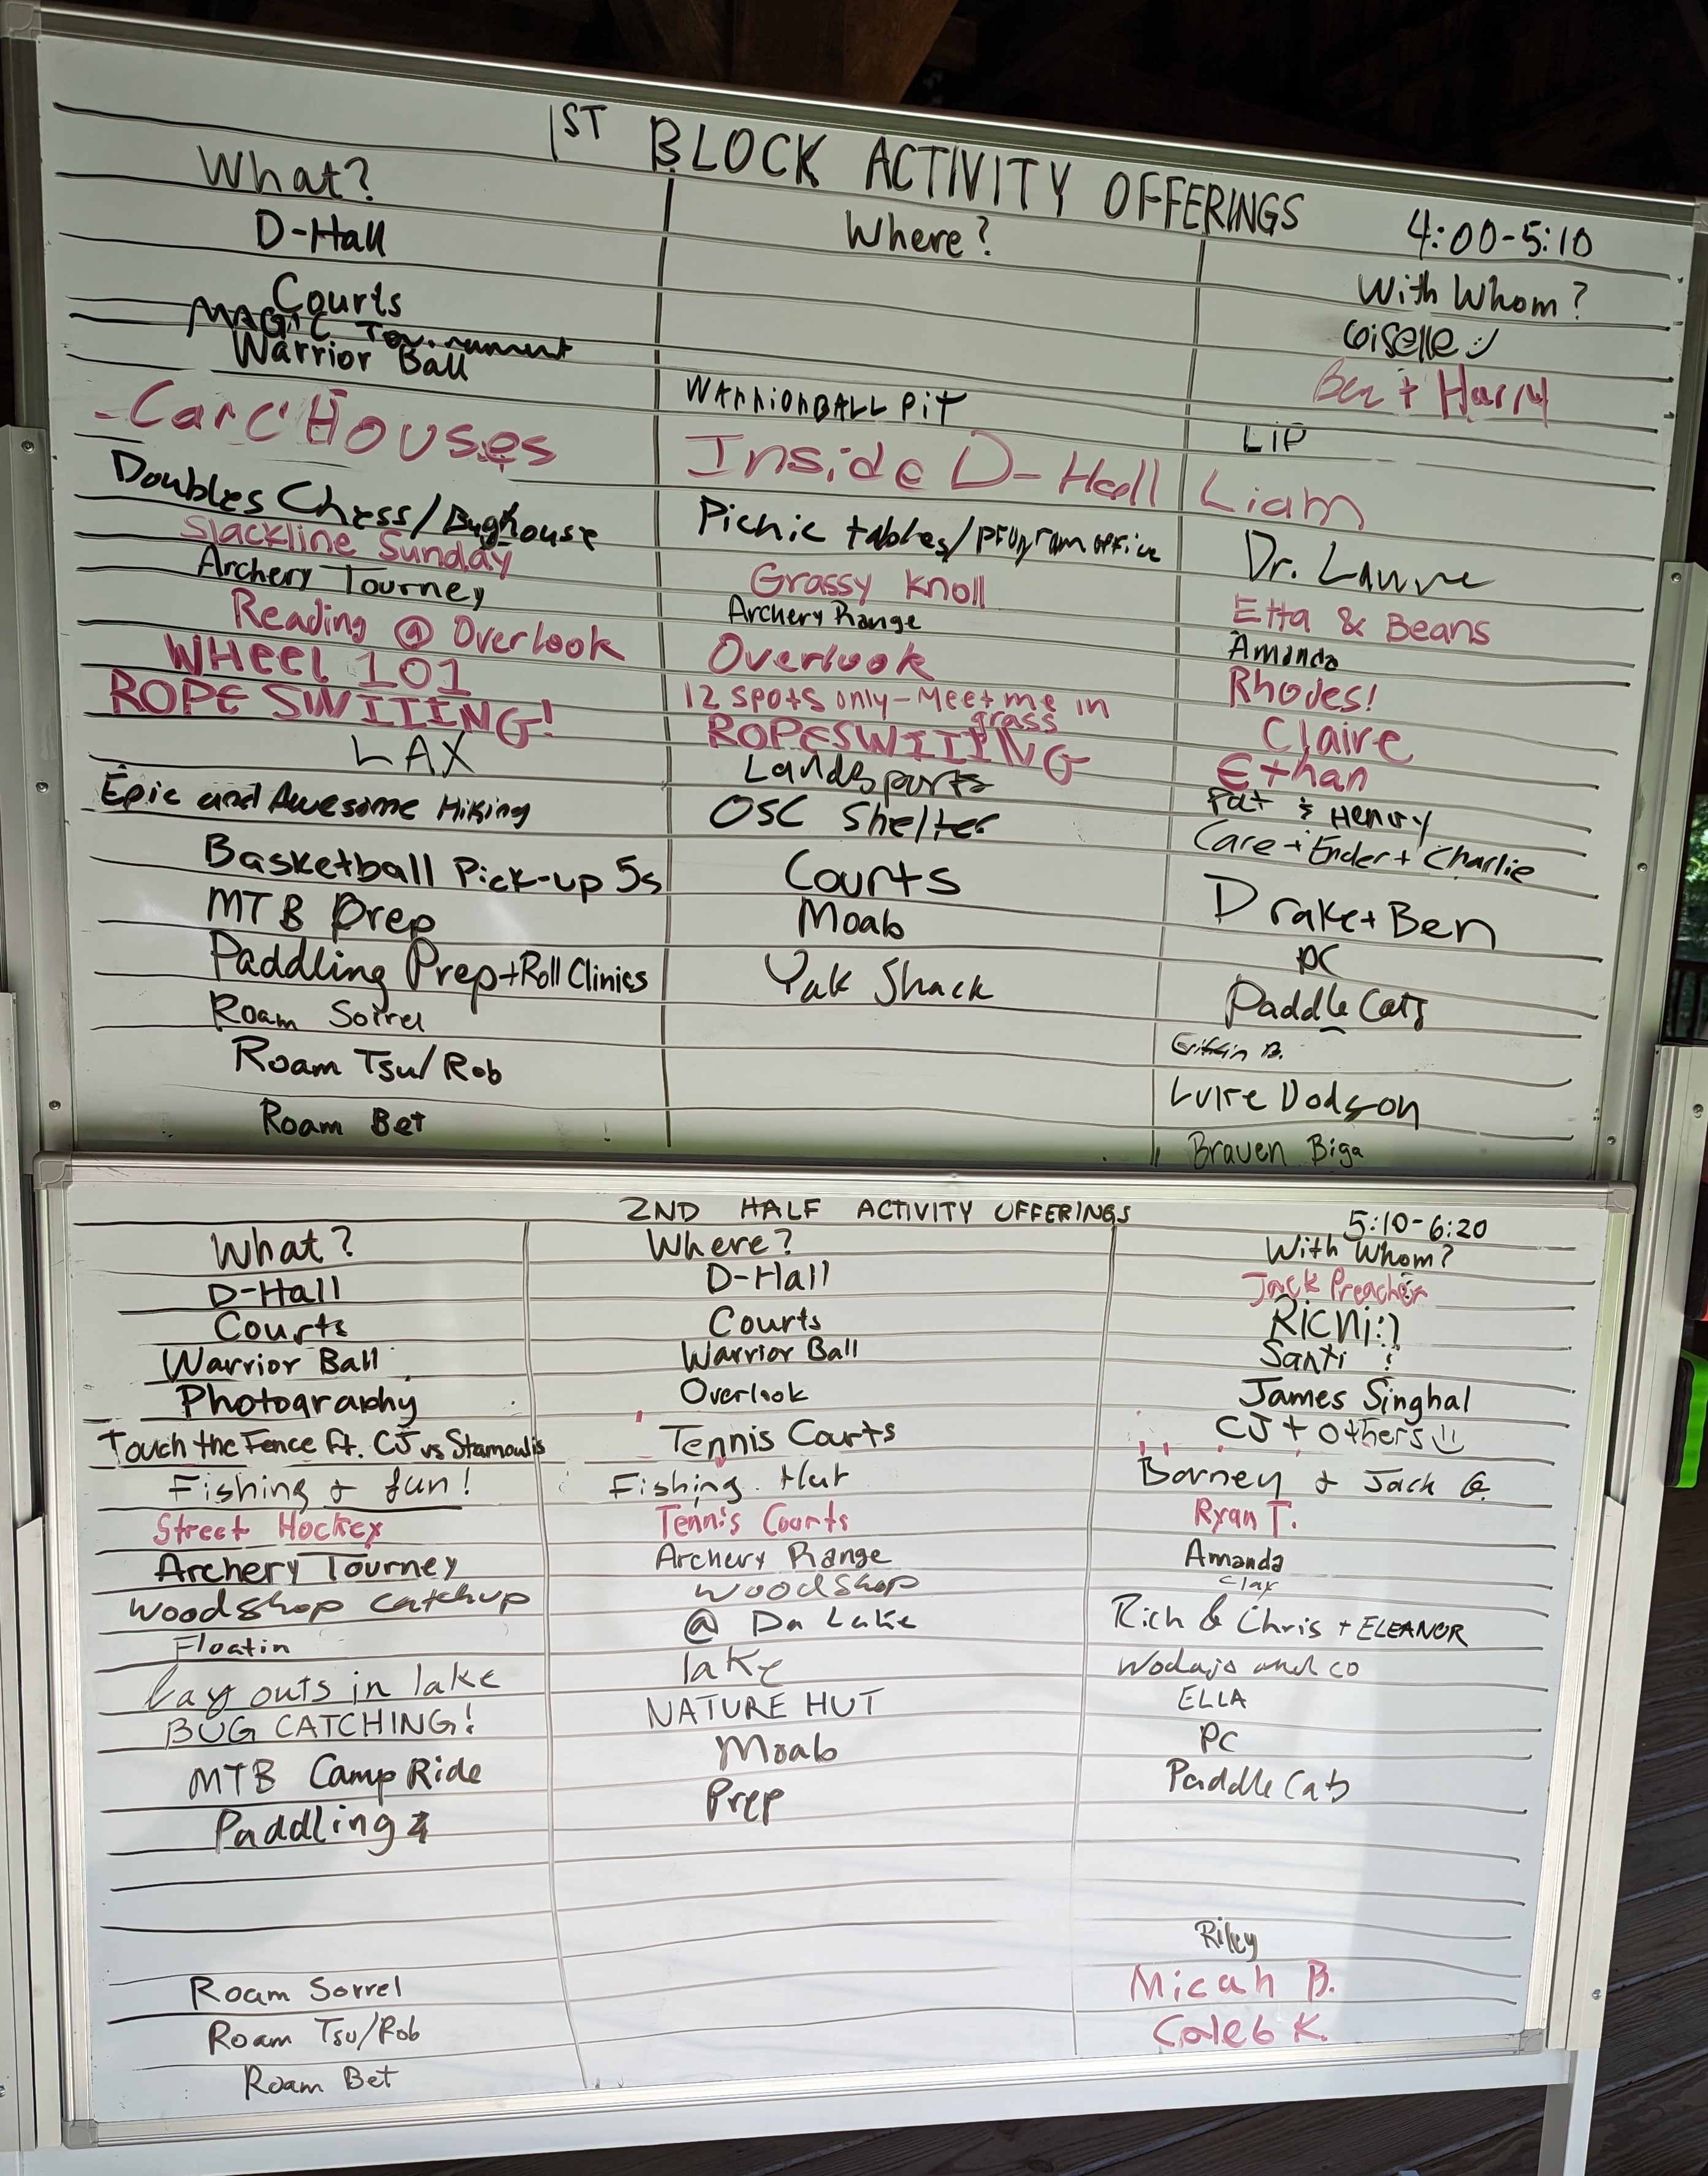 1ST BLOCK ACTIVITY OFFERINGS 4:00-5:10
What? Where? With Whom?
D-Hall Giselle :)
Courts Ben + Harry
MAGIC Tournament
Warrior Ball WARRIORBALL PIT LIP
- Card Houses Inside D-Hall Liam
Doubles Chess/Bughouse Picnic tables/program office Dr.
Slackline Sunday Grassy Knoll Etta & Beans
Archery Tourney Archery Range Amanda
Reading @ Overlook Overlook Rhodes!
WHEEL 101 12 spots only - Meet me in grass Claire
ROPE SWIIING! ROPESWIIING Ethan
LAX Landsports Pat & Henry
Epic and Awesome Hiking OSC Shelter Care + Ender + Charlie
Basketball Pick-up 5s Courts Drake + Ben
MTB Prep Moab PC
Paddling Prep + Roll Clinics Yak Shack Paddle Cats
Roam Sorrel Griffin B.
Roam Tsu/Rob Luke Dodson
Roam Bet Braven Biga
2ND HALF ACTIVITY OFFERINGS 5:10-6:20
What? Where? With Whom?
D-Hall D-Hall Jack Preacher
Courts Courts Richi :)
Warrior Ball Warrior Ball Santi !
Photography Overlook James Singhal
Touch the Fence ft. CJ vs Stamoulis Tennis Courts CJ + others
Fishing & fun! Fishing Hut Barney & Jack G.
Street Hockey Tennis Courts Ryan T.
Archery Tourney Archery Range Amanda
Woodshop catchup woodshop Clay
Floatin @ Da Lake Rich & Chris + ELEANOR
Lay outs in lake lake Wodajo and co
BUG CATCHING! NATURE HUT ELLA
MTB Camp Ride Moab PC
Paddling Prep Paddle Cats
Roam Sorrel Riley
Roam Tsu/Rob Micah B.
Roam Bet Caleb K.